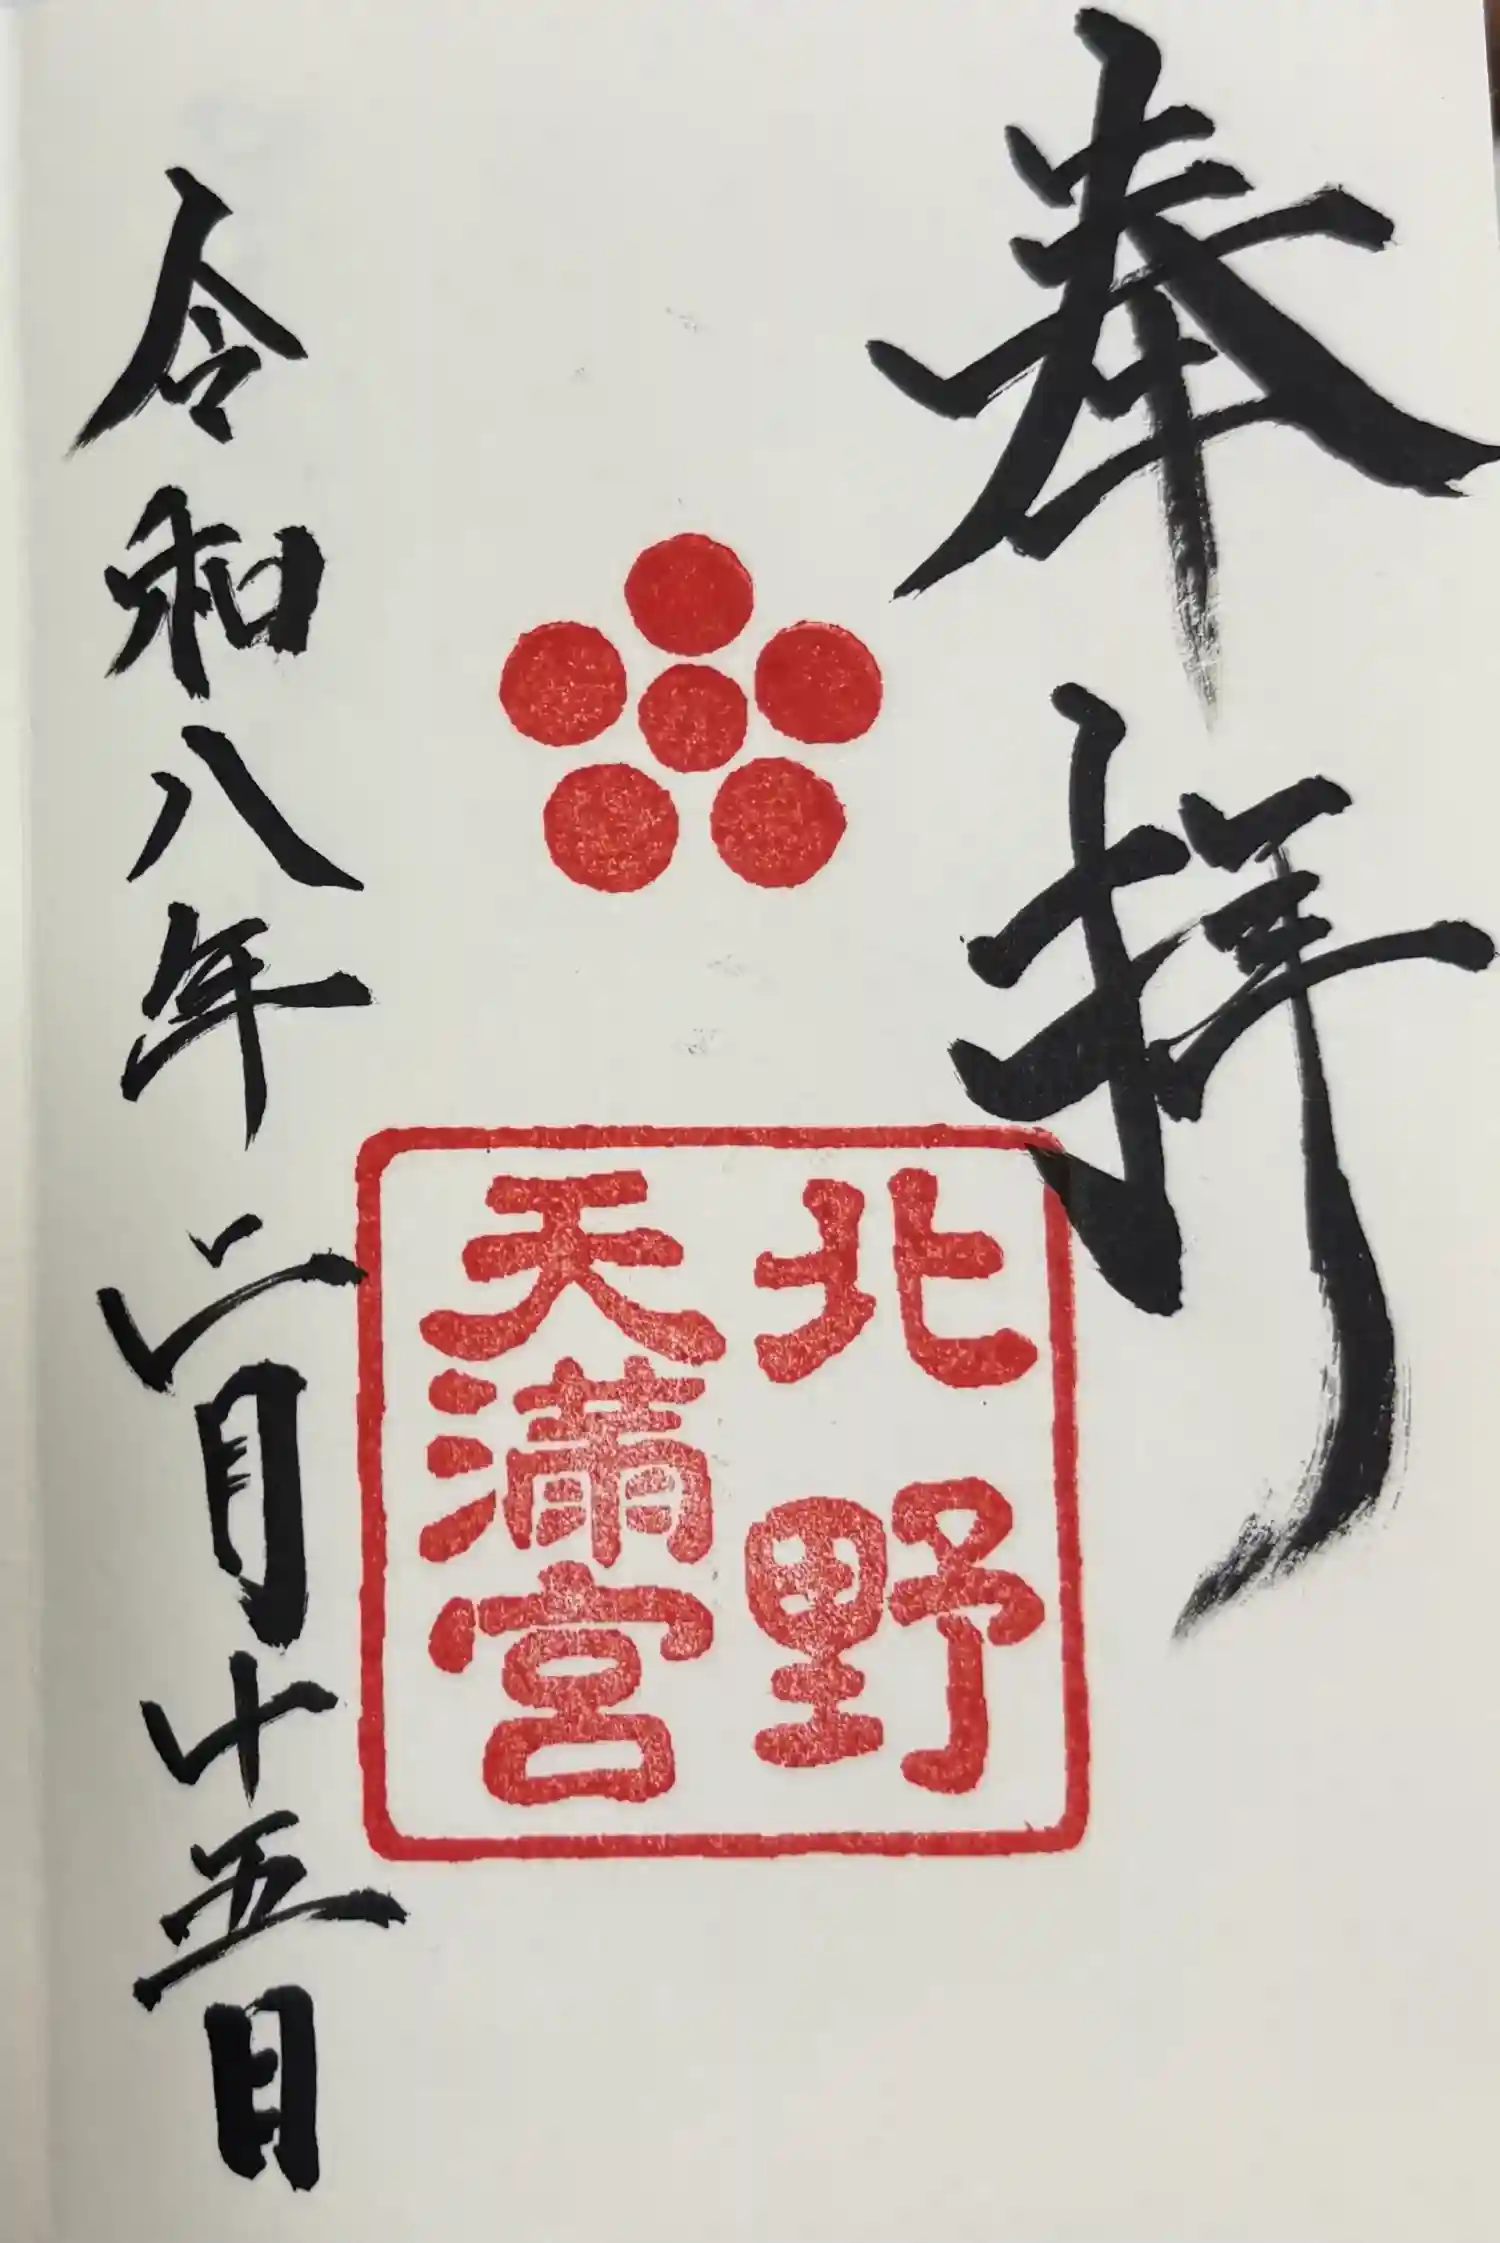 奉拝
北野
天満宮
令和八年二月十五日